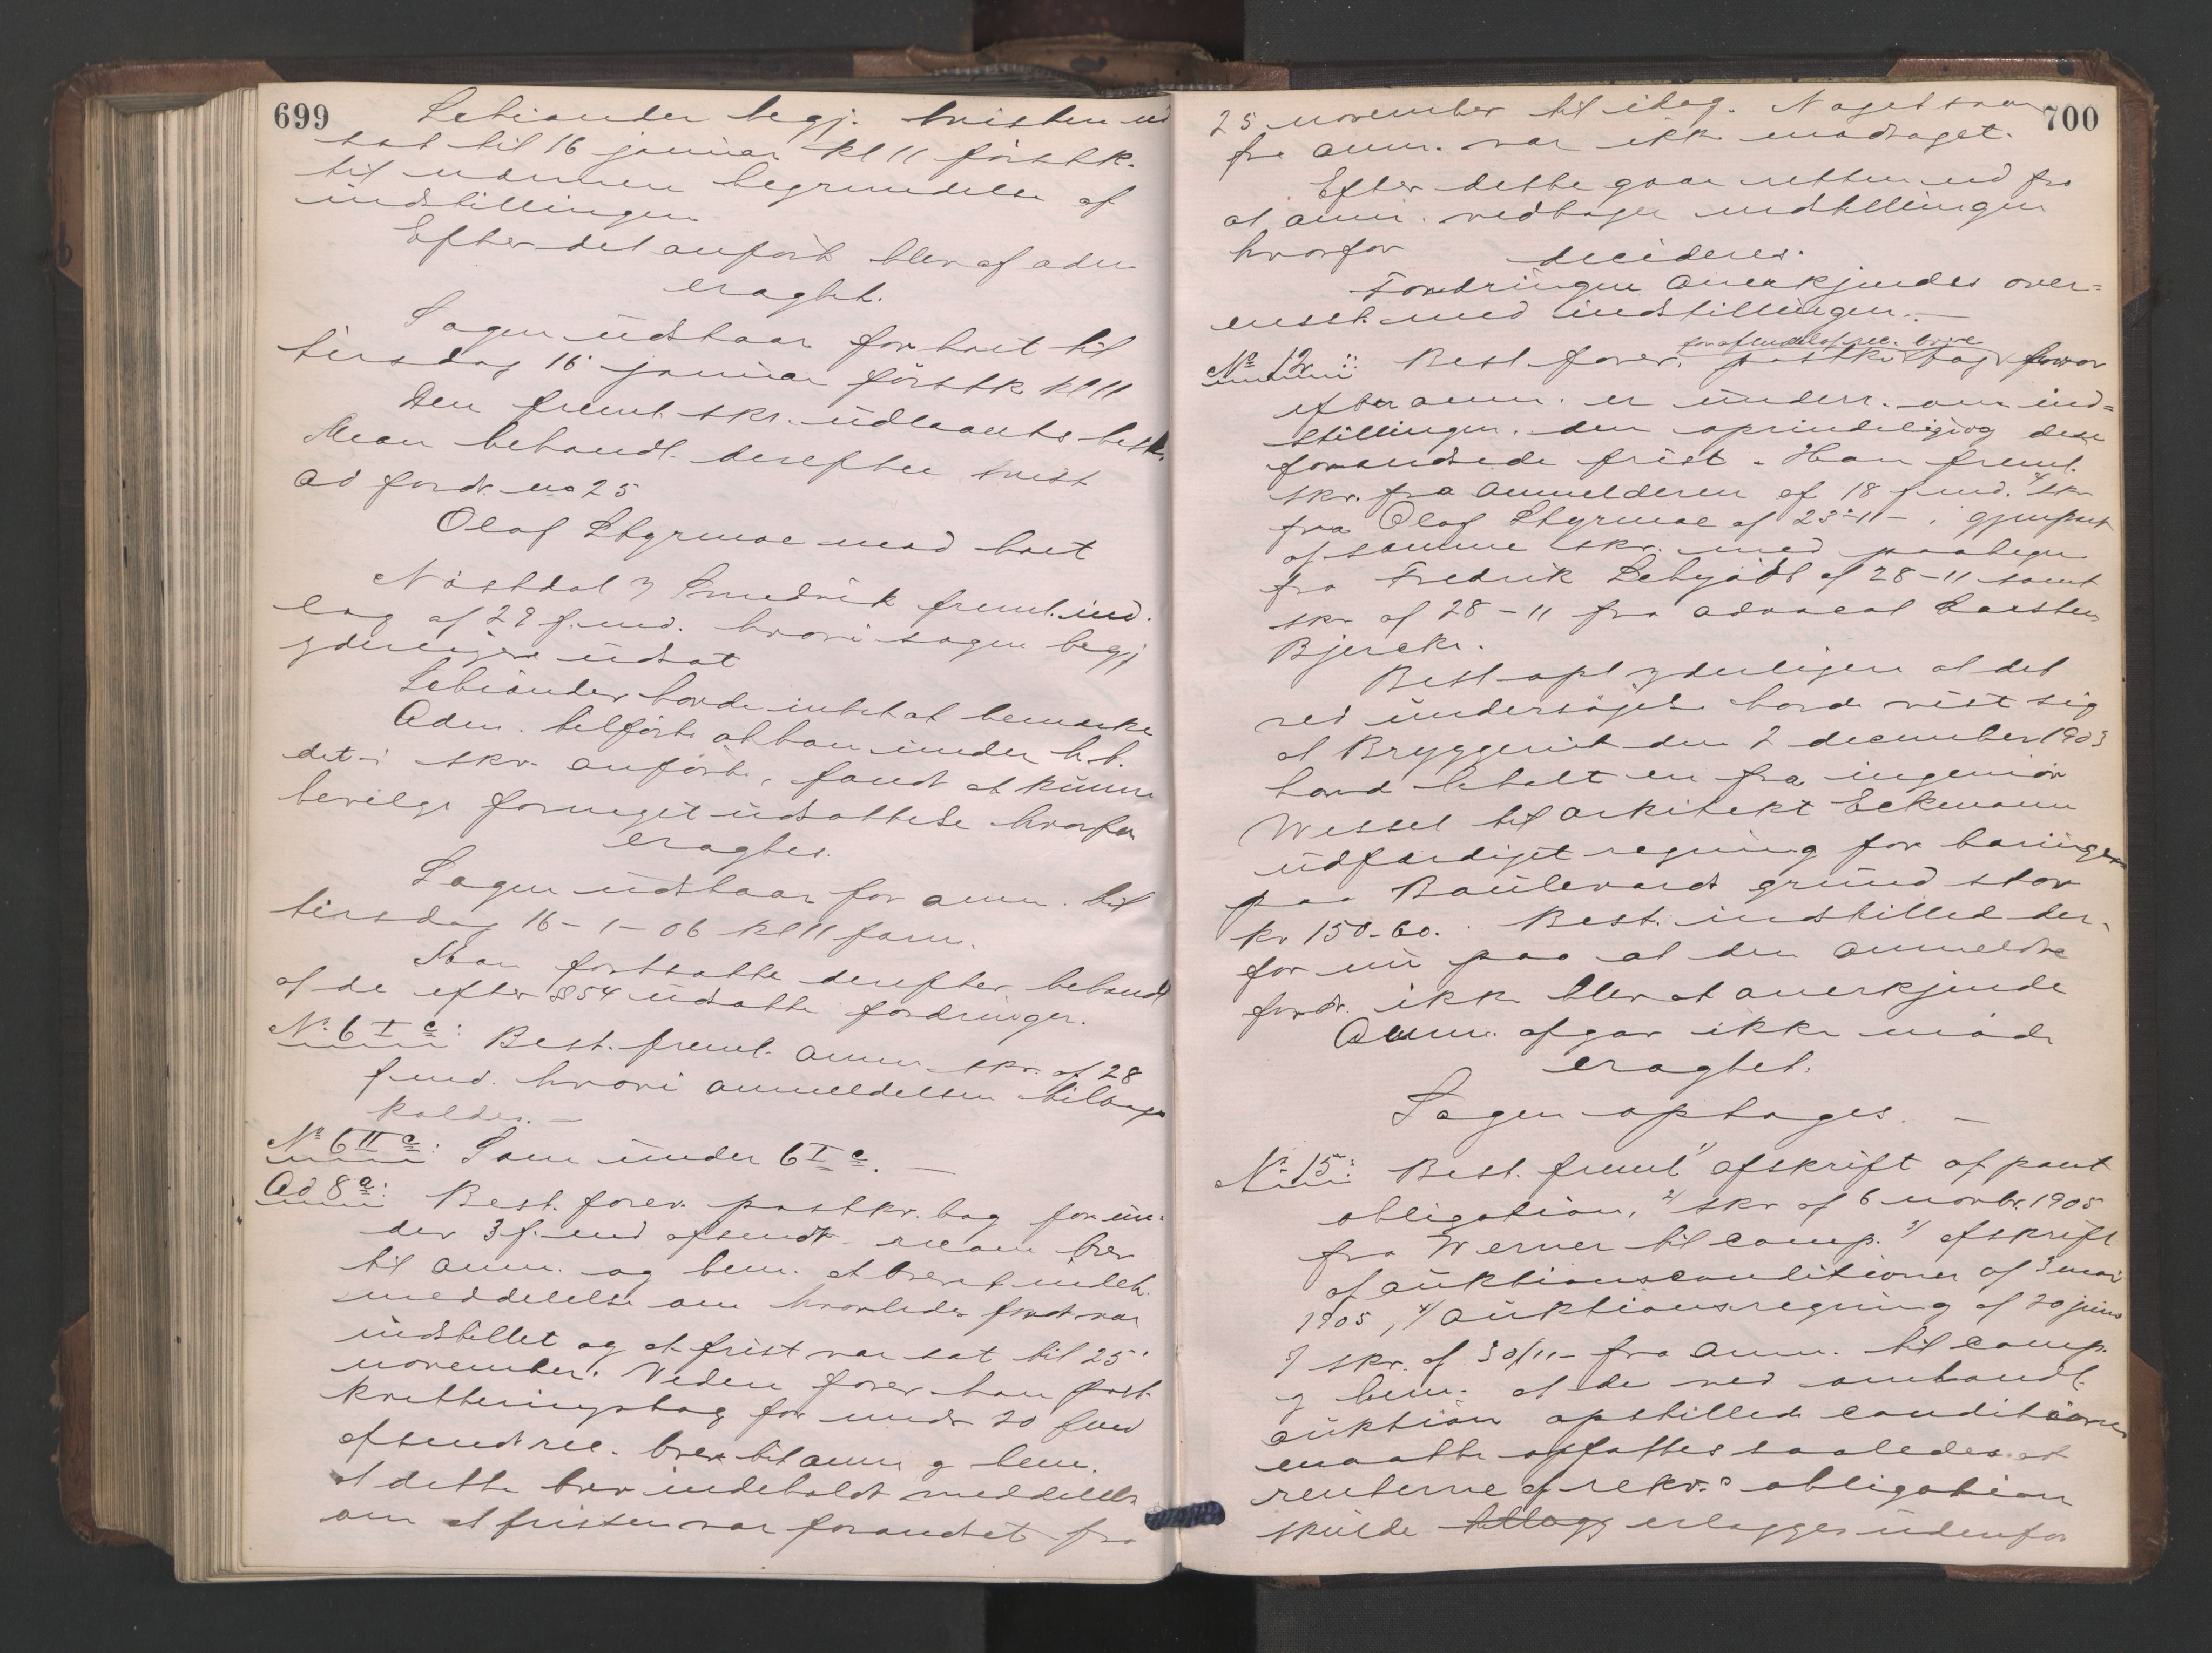 699
Schiander begj. tvisten ud
sat til 16 januar kl 11 förstk.
til nærmere begrundelse af
indstillingen
Efter det anförte blev af adm
eragtet.
Sagen udstaar for hvet til
tirsdag 16 januar förstk kl 11
Den freml. skr. udlaants best.
Man behandl. derefter tvist
ad fordr. no 25
Olaf Styrmoe mod boet
Nöstdal & freml. ind.
læg af 29 f. md. hvori sagen begj
yderligere udsat
Schiander havde intet at bemærke
Adm. tilförte at han under h. t.
det i skr. anförte, fandt at kunne
bevilge forneget udsættelse hvorfor
eragtes.
Sagen udstaar for anm. til
tirsdag 16-1-06 kl 11 form.
Man fortsatte derefter behandl
af de efter § 54 udsatte fordringer.
No 6 I c: Best. freml. anm. skr. af 28
f md. hvori anmeldelsen tilbage
kaldes. —
No 6 II c: Som under 6 I c. —
Ad 8 a: Best. forev. postkv. bog for un-
der 3 f. md afsendt recom brev
til anm. og bem. at brevet indeh.
meddelelse om hvorledes fordr var
indstillet og at frist var sat til 25'
november. Videre forev han post
kvitteringsbog for under 20 f md
afsendt rec. brev til anm & bem.
at dette brev indeholdt meddelelse
om at fristen var forandret fra
700
25 november til idag. Noget svar
fra anm. var ikke modtaget.
Efter dette gaar retten ud fra
at anm. vedtager indstillingen
hvorfor decideres.
Fordringen anerkjendes over-
ensst. med indstillingen. —
for afsendelse af rec. breve
No 12: Best. forev. postkv bog hvor
efter anm. er underr. om ind-
stillingen, den oprindelig og den
forandrede frist. Han freml.
skr. fra anmelderen af 18 f. md. skr
fra Olaf Styrmoe af 23-11-, gjenpart
af samme skr. med paategn
fra Fredrik af 28-11 samt
skr af 28-11 fra advocat Carsten
Bjercke.
Best opl yderligere at det
ved undersögelse havde vist sig
at Bryggeriet den 2 december 1903
havde betalt en fra ingeniör
Wessel til arkitekt Eckmann
udfærdiget regning for boringer
paa Boulevards grund stor
kr 150.60. Best. indstilled der-
for nu paa at den anmeldte
fordr. ikke blev at anerkjende
Anm. afgav ikke möde
eragtet.
Sagen optages. —
No 15: Best. freml 1/ afskrift af pant
obligation, 2/ skr af 6 novbr. 1905
fra Werner til comp. 3/ afskrift
af auktionsconditioner af 3 mai
1905, 4/ auktionsregning af 20 juni
5/ skr. af 30/11- fra anm. til comp.
& bem. at de ved omhandl.
auktion opstillede conditioner
maatte opfattes saaledes at
renterne af rekv.s obligation
skulde erlægges udenfor